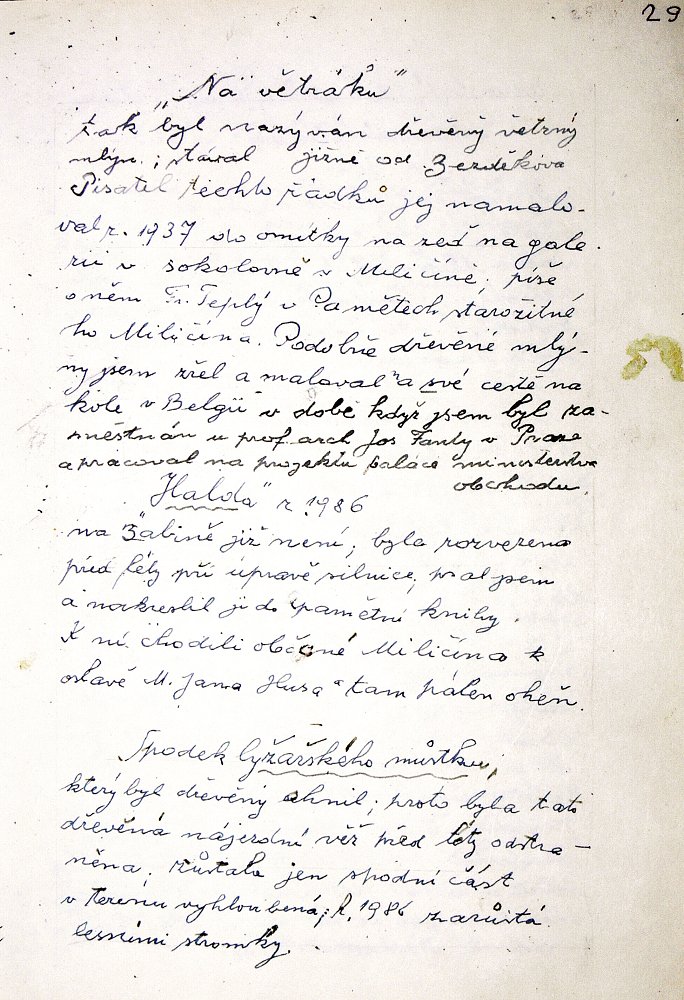 29
„Na větráku"
tak byl nazýván dřevěný větrný
mlýn; stával jižně od Bezděkova
Pisatel těchto řádků jej namalo-
val r. 1937 do omítky na zeď na gale
rii v sokolovně v Miličíně; píše
o něm Fr. Teplý v Pamětech starožitné
ho Miličína. Podobně dřevěné mlý-
ny jsem zřel a maloval na své cestě na
kole v Belgii v době když jsem byl za-
městnán u prof. arch Jos Fanty v Praze
a pracoval na projektu paláce ministerstva
obchodu.
„Halda" r. 1986
na Žabině již není; byla rozvezena
před léty při úpravě silnice; psal jsem
a nakreslil ji do pamětní knihy.
K ní chodili občané Miličína k
oslavě M. Jana Husa a tam pálen oheň.
Spodek lyžařského můstku,
který byl dřevěný shnil; proto byla tato
dřevěná nájezdní věž před léty odstra-
něna; zůstala jen spodní část
v terénu vyhloubená; r. 1986 zarůstá
lesními stromky.